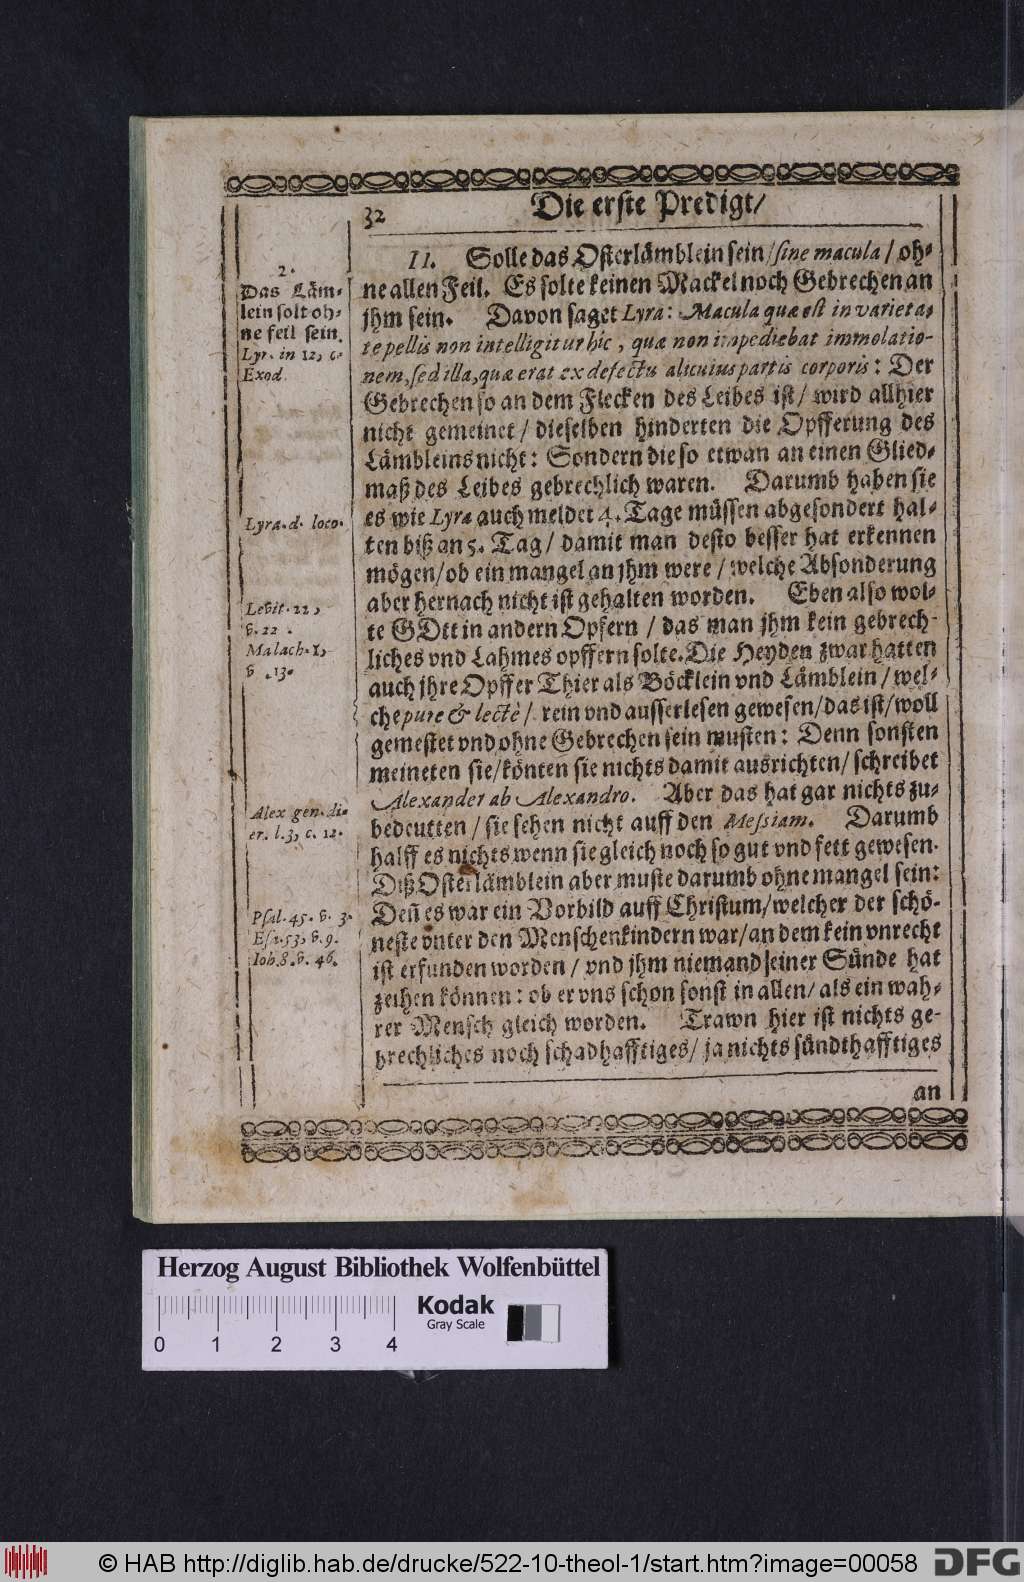 32
Die erste Predigt/
2.
Das Läm-
lein solt oh-
ne feil sein.
Lyr. in 12, c.
Exod.
Lyra. d. loco.
Levit. 22,
v. 22.
Malach. 1,
v. 13.
Alex gen. di-
er. l. 3, c. 12.
Psal. 45. v. 3.
Esa. 53, v. 9.
Ioh. 8. v. 46.
II. Solle das Osterlämblein sein/ sine macula/ oh-
ne allen Feil. Es solte keinen Mackel noch Gebrechen an
jhm sein. Davon saget Lyra: Macula quæ est in varieta-
te pellis non intelligitur hîc, quæ non impediebat immolatio-
nem, sed illa, quæ erat ex defectu alicuius partis corporis: Der
Gebrechen so an dem Flecken des Leibes ist/ wird allhier
nicht gemeinet/ dieselben hinderten die Opfferung des
Lämbleins nicht: Sondern die so etwan an einen Glied-
maß des Leibes gebrechlich waren. Darumb haben sie
es wie Lyra auch meldet 4. Tage müssen abgesondert hal-
ten biß an 5. Tag/ damit man desto besser hat erkennen
mögen/ ob ein mangel an jhm were/ welche Absonderung
aber hernach nicht ist gehalten worden. Eben also wol-
te GOtt in andern Opfern/ das man jhm kein gebrech-
liches vnd Lahmes opffern solte. Die Heyden zwar hatten
auch jhre Opffer Thier als Böcklein vnd Lämblein/ wel-
che pure & lectè/ rein vnd ausserlesen gewesen/ das ist/ woll
gemestet vnd ohne Gebrechen sein musten: Denn sonsten
meineten sie/ könten sie nichts damit ausrichten/ schreibet
Alexander ab Alexandro. Aber das hat gar nichts zu-
bedeutten/ sie sehen nicht auff den Messiam. Darumb
halff es nichts wenn sie gleich noch so gut vnd fett gewesen.
Diß Osterlämblein aber muste darumb ohne mangel sein:
Deñ es war ein Vorbild auff Christum/ welcher der schö-
neste vnter den Menschenkindern war/ an dem kein vnrecht
ist erfunden worden/ vnd jhm niemand seiner Sünde hat
zeihen können: ob er vns schon sonst in allen/ als ein wah-
rer Mensch gleich worden. Trawn hier ist nichts ge-
brechliches noch schadhafftiges/ ja nichts sündthafftiges
an
Herzog August Bibliothek Wolfenbüttel
Kodak
Gray Scale
0 1 2 3 4
© HAB http://diglib.hab.de/drucke/522-10-theol-1/start.htm?image=00058
DFG